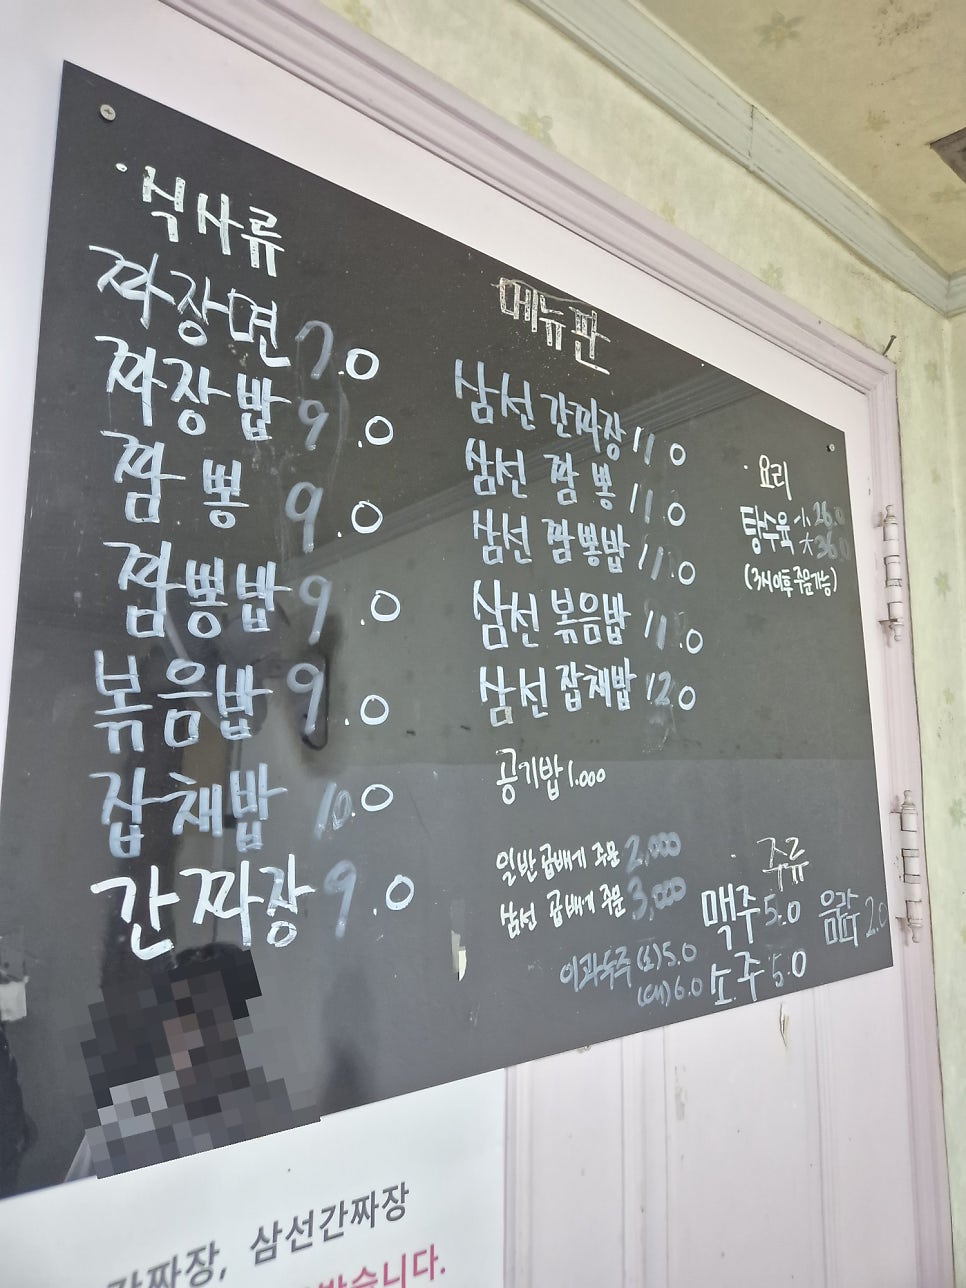 · 식사류
짜장면 7.0
짜장밥 9.0
짬뽕 9.0
짬뽕밥 9.0
볶음밥 9.0
잡채밥 10.0
간짜장 9.0
메뉴판
삼선 간짜장 11.0
삼선 짬뽕 11.0
삼선 짬뽕밥 11.0
삼선 볶음밥 11.0
삼선 잡채밥 12.0
공기밥 1.000
일반 곱배기 주문 2,000
삼선 곱배기 주문 3,000
이과두주 (소) 5.0
(대) 6.0
· 요리
탕수육 小 26.0
大 36.0
(3시이후 주문가능)
· 주류
맥주 5.0 음료 2.0
소주 5.0
간짜장, 삼선간짜장
받습니다.